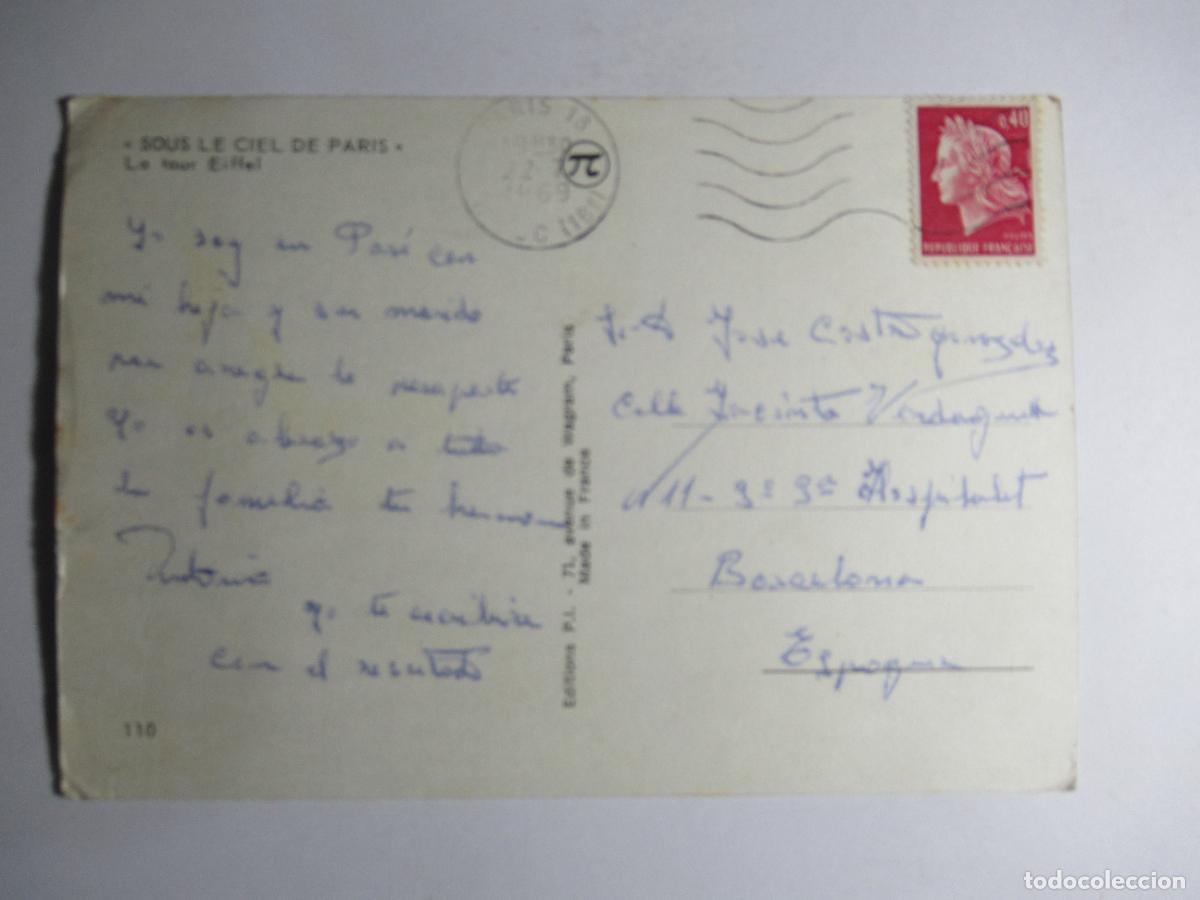 « SOUS LE CIEL DE PARIS »
La tour Eiffel
RIS 18
22
1969
π
0,40
REPUBLIQUE FRANÇAISE
Yo soy en Pari con
mi hija y su marido
para aregre lo
Yo os abrazo a toda
la familia tu hermano
Antonio
yo te escribire
con el resultado
110
Editions P.I. - 71, avenue de Wagram, Paris
Made in France
Jose Costa
Calle Jacinto Verdaguer
n 11 - 3º 3ª Hospitalet
Barcelona
Espagna
todocoleccion